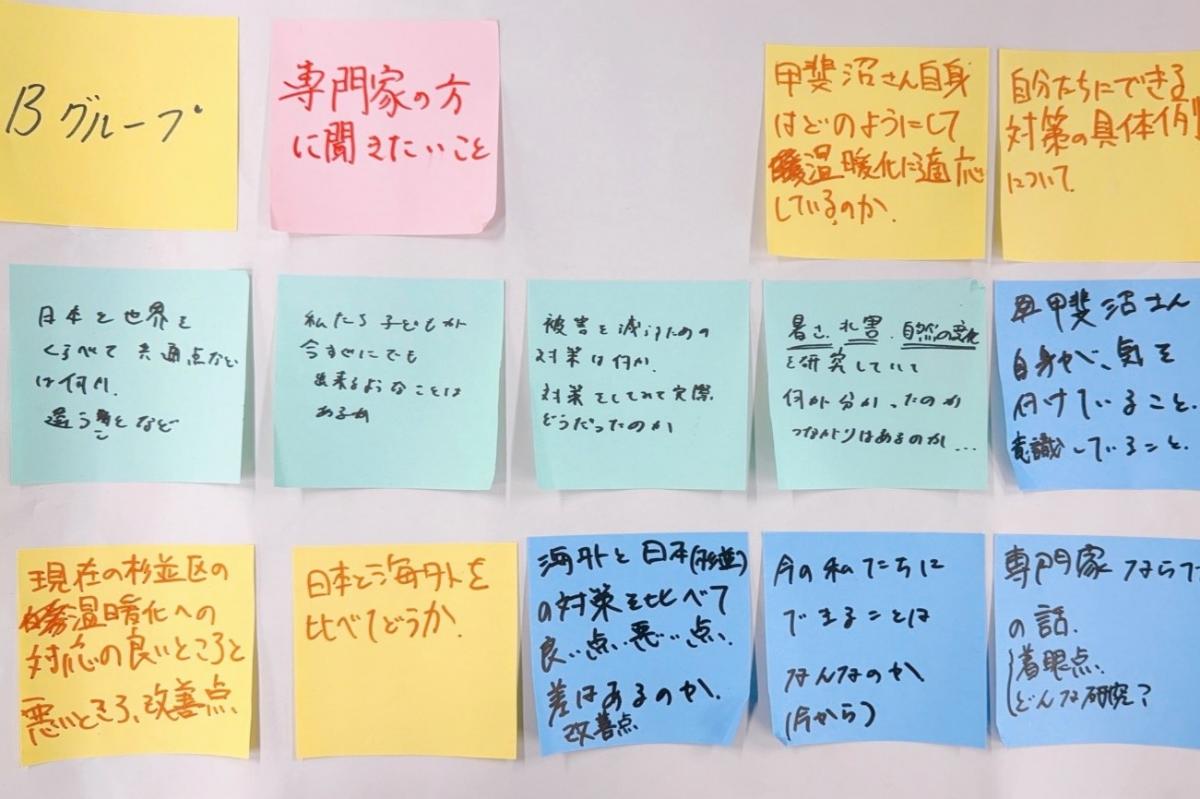 Bグループ
専門家の方
に聞きたいこと
甲斐沼さん自身
はどのようにして
温暖化に適応
しているのか.
自分たちにできる
対策の具体例
について.
日本と世界を
くらべて共通点など
は何か.
違うことなど
私たち子どもが
今すぐにでも
出来るようなことは
あるか
被害を減らすための
対策は何か.
対策をしてみて実際
どうだったのか
暑さ、水害、自然の変化
を研究していて
何が分かったのか
つながりはあるのか…
甲斐沼さん
自身が、気を
付けていること.
意識していること.
現在の杉並区の
温暖化への
対応の良いところと
悪いところ、改善点
日本と海外を
比べてどうか.
海外と日本(杉並)
の対策を比べて
良い点、悪い点.
差はあるのか.
改善点
今の私たちに
できることは
なんなのか
(今から)
専門家ならで
の話.
着眼点、
どんな研究?